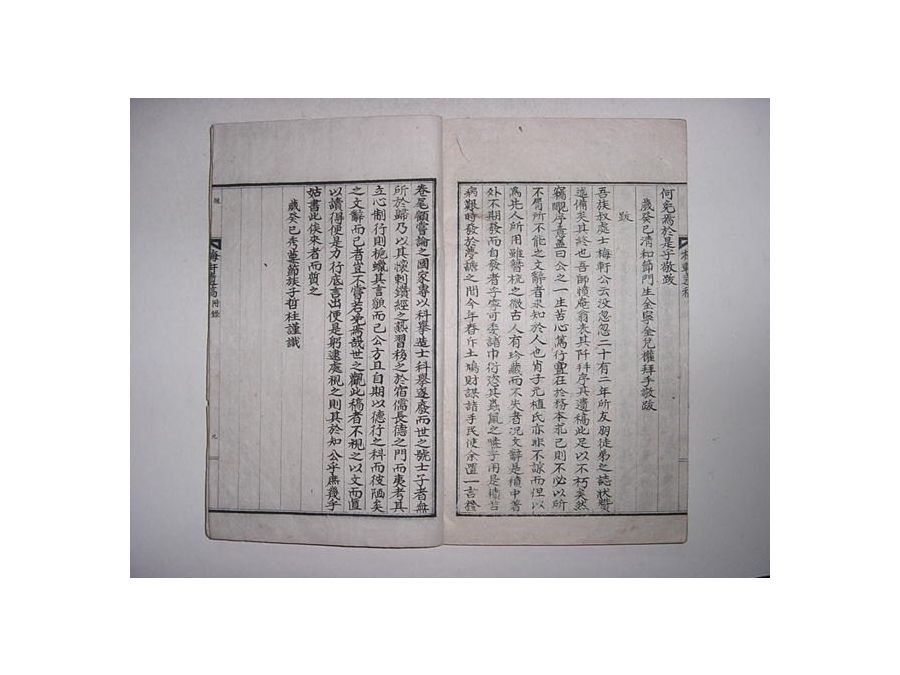 何免焉於是乎敬跋
歲癸巳淸和節門生金寧金兌權拜手敬跋
跋
吾族叔處士梅軒公云沒忽忽二十有二年所友朋徒弟之誌狀贊
述備矣其終也吾師懶庵翁表其阡拜序其遺稿此足以不朽矣然
竊覸序意蓋曰公之一生苦心篤行亶在於務本乖己則不必以所
不屑所不能之文辭者求知於人也肖子元植氏亦非不諒而但以
爲先人所用雖簪梳之微古人有珍藏而不失者況文辭是積中著
外不期發而自發者乎寧可委諸巾衍恣其蟲鼠之嚙乎用是積苦
病艱時發於夢譫之間今年春斥土鳩財謀諸手民使余置一言於
卷尾顧嘗論之國家專以科擧造士科擧遂廢而世之號士子者無
所於歸乃以其懷剌鑽經之習務之於宿儒長德之門而夷考其
立心制行則梔蠟其言貌而已公方且自期以德行之科而彼陋矣
之文辭而已者豈不嘗若兔焉哉世之觀此稿者不視之以文而直
以讀得便是方行底言出便是躬逮處視之則其於知公乎庶幾乎
姑書此俟來者而質之
歲癸巳秀葽節族子哲柱謹識
梅軒遺稿
附錄
跋
九